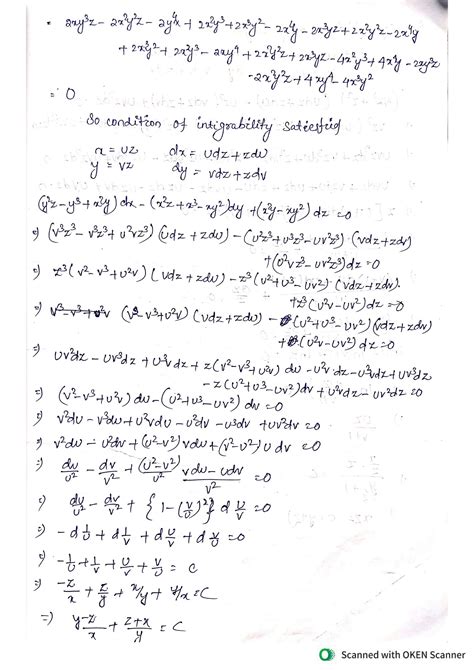 = 2xy³z - 2x²y²z - 2y⁴x + 2x²y³ + 2x³y² - 2x⁴y - 2x³yz + 2x²y²z - 2x⁴y
+ 2x³y² + 2x²y³ - 2xy⁴ + 2x²y²z + 2x³yz - 4x²y³ + 4x⁴y - 2xy³z
- 2x²y²z + 4xy⁴ - 4x³y²
= 0
So condition of intigrability satisfied
x = uz dx = udz + zdu
y = vz dy = vdz + zdv
(y²z - y³ + x²y) dx - (x²z + x³ - xy²) dy + (x²y - xy²) dz = 0
⇒) (v²z³ - v³z³ + u²vz³) (udz + zdu) - (u²z³ + u³z³ - uv²z³) (vdz + zdv)
+ (u²vz³ - uv²z³) dz = 0
⇒) z³ (v² - v³ + u²v) (udz + zdu) - z³ (u² + u³ - uv²) (vdz + zdv)
+ z³ (u²v - uv²) dz = 0
⇒) (v² - v³ + u²v) (udz + zdu) - (u² + u³ - uv²) (vdz + zdv)
+ (u²v - uv²) dz = 0
⇒) uv²dz - uv³dz + u³vdz + z (v² - v³ + u²v) du - u²vdz - u³vdz + uv³dz
- z (u² + u³ - uv²) dv + u²vdz - uv²dz = 0
⇒) (v² - v³ + u²v) du - (u² + u³ - uv²) dv = 0
⇒) v²du - v³du + u²vdu - u²dv - u³dv + uv²dv = 0
⇒) v²du - u²dv + (u² - v²) vdu + (v² - u²) u dv = 0
⇒) du/u² - dv/v² + (u² - v²)/u² (vdu - udv)/v² = 0
⇒) du/u² - dv/v² + {1 - (v/u)²} d u/v = 0
⇒) - d 1/u + d 1/v + d u/v + d v/u = 0
⇒) - 1/u + 1/v + u/v + v/u = c
⇒) -z/x + z/y + x/y + y/x = c
⇒) (y-z)/x + (z+x)/y = c
Scanned with OKEN Scanner